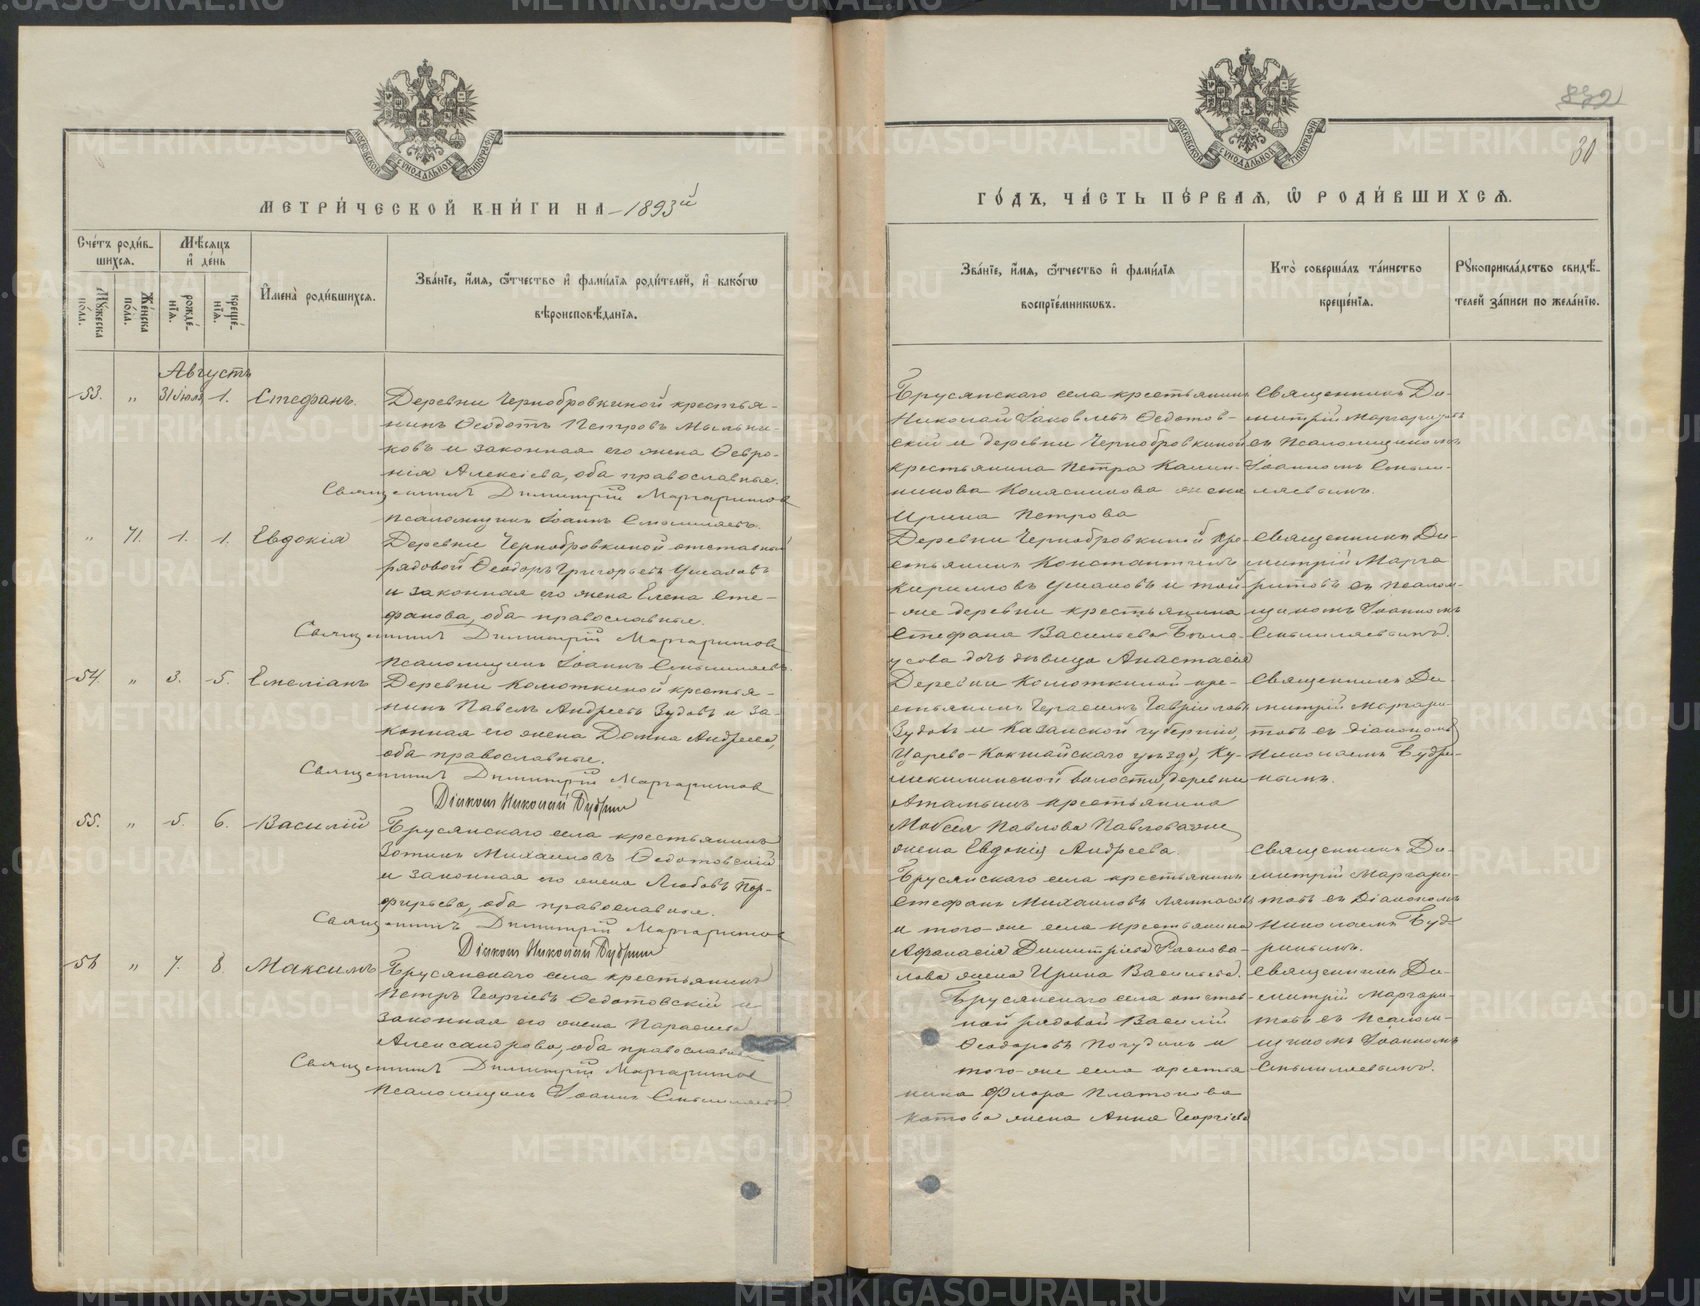 МЕТРИ́ЧЕСКОЙ КНИ́ГИ НА 1893й
Сче́тъ роди́в-
шихсѧ.
Мѣ́сѧцъ
и҆ де́нь
Мꙋ́жеска
по́ла.
Же́нска
по́ла.
рожде́-
нїѧ.
креще́-
нїѧ.
И҆мена̀ роди́вшихсѧ.
Зва́нїе, и҆́мѧ, ѻ҆́тчество и҆ фами́лїѧ роди́телей, и҆ како́гѡ
вѣроисповѣ́данїѧ.
Августъ
53. " 31 Іюля 1. Стефанъ.
Деревни Чернобровкиной крестья-
нинъ Ѳеодотъ Петровъ Мыльни-
ковъ и законная его жена Ѳевро-
нія Алексіева, оба православные.
Священникъ Димитрій Маргаритовъ
Псаломщикъ Іоаннъ
" 71. 1. 1. Евдокія
Деревни Чернобровкиной отставный
рядовой Ѳеодоръ Григорьевъ Ушаковъ
и законная его жена Елена Сте-
фанова, оба православные.
Священникъ Димитрій Маргаритовъ
Псаломщикъ Іоаннъ
54. " 3. 5. Емеліанъ
Деревни Колюткиной крестья-
нинъ Павелъ Андреевъ Зудовъ и за-
конная его жена Домна Андреева,
оба православные.
Священникъ Димитрій Маргаритовъ
Діаконъ Николай Будринъ
55. " 5. 6. Василій
Брусянскаго села крестьянинъ
Зотикъ Михаиловъ Ѳедотовскій
и законная его жена Любовь Пор-
фирьева, оба православные.
Священникъ Димитрій Маргаритовъ
Діаконъ Николай Будринъ
56 " 7. 8. Максимъ
Брусянскаго села крестьянинъ
Петръ Георгіевъ Ѳедотовскій и
законная его жена Параскева
Александрова, оба православные
Священникъ Димитрій Маргаритовъ
Псаломщикъ Іоаннъ
832
30
ГО́ДЪ, ЧА́СТЬ ПЕ́РВАѦ, Ѡ҆ РОДИ́ВШИХСѦ.
Зва́нїе, и҆́мѧ, ѻ҆́тчество и҆ фами́лїѧ
воспрїе́мникѡвъ.
Кто̀ соверша́лъ та́инство
креще́нїѧ.
Рꙋкоприкла́дство свидѣ́-
телей за́писи по жела́нїю.
Брусянскаго села крестьянинъ
Николай Іаковлевъ Ѳедотов-
скій и деревни Чернобровкиной
крестьянина Петра Калин-
никова Колясникова жена
Ирина Петрова
Священникъ Ди-
митрій Маргаритовъ
съ псаломщикомъ
Іоанномъ
Деревни Чернобровкиной кре-
стьянинъ Константинъ
Кирилловъ Ушаковъ и той-
-же деревни крестьянина
Стефана Васильева
дочь дѣвица Анастасія
Священникъ Ди-
митрій Марга
ритовъ съ псалом-
щикомъ Іоанномъ
Деревни Колюткиной кре-
стьянинъ Герасимъ Гавріиловъ
Зудовъ и Казанской губерніи,
Царево-Кокшайскаго уѣзда, Ку-
волости, деревни
крестьянина
Моѵсея Павлова
жена Евдокія Андреева.
Священникъ Ди-
митрій Маргари-
товъ съ діакономъ
Николаемъ Будри-
нымъ.
Брусянскаго села крестьянинъ
Стефанъ Михаиловъ
и того-же села крестьянина
Аѳанасія Димитріева
жена Ирина Васильева.
Священникъ Ди-
митрій Маргари-
товъ съ Діакономъ
Николаемъ Буд-
ринымъ.
Брусянскаго села отстав-
ной рядовой Василій
Ѳеодоровъ Погудинъ и
того-же села крестья
нина Флора Платонова
жена Анна Георгіева
Священникъ Ди-
митрій Маргари-
товъ съ псалом-
щикомъ Іоанномъ